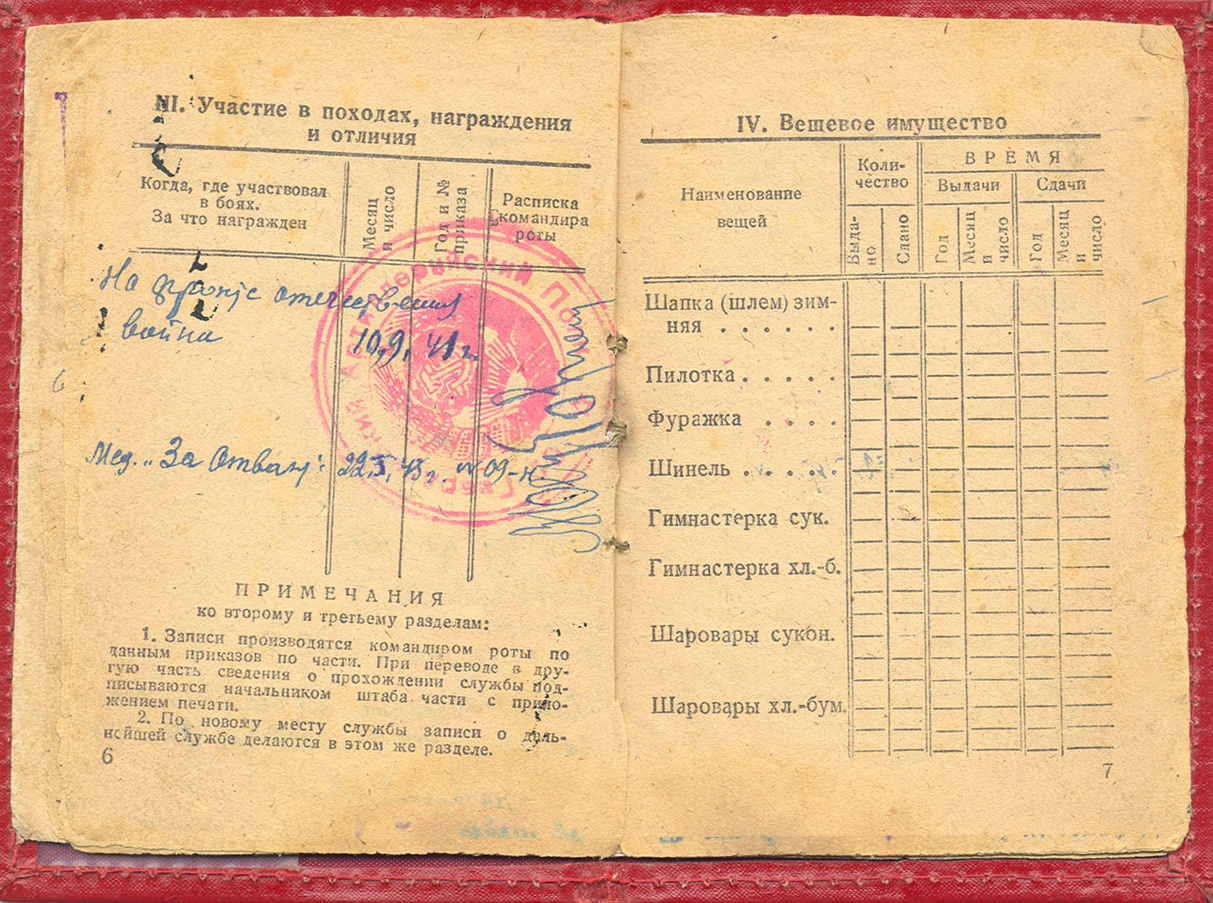 III. Участие в походах, награждения
и отличия
Когда, где участвовал
в боях.
За что награжден
Месяц
и число
Год и №
приказа
Расписка
командира
роты
На фронте отечествения
война
10.9. 41 г.
Мед. „За Отвагу" 22.5. 43 г. № 09-н.
ПРИМЕЧАНИЯ
ко второму и третьему разделам:
1. Записи производятся командиром роты по
данным приказов по части. При переводе в дру-
гую часть сведения о прохождении службы под-
писываются начальником штаба части с прило-
жением печати.
2. По новому месту службы записи о даль-
нейшей службе делаются в этом же разделе.
6
IV. Вещевое имущество
Наименование
вещей
Коли-
чество
ВРЕМЯ
Выдачи
Сдачи
Выда-
но
Сдано
Год
Месяц
и
число
Год
Месяц
и
число
Шапка (шлем) зим-
няя . . . . . .
Пилотка . . . . .
Фуражка . . . .
Шинель . . . . .
Гимнастерка сук.
Гимнастерка хл.-б.
Шаровары сукон.
Шаровары хл.-бум.
7